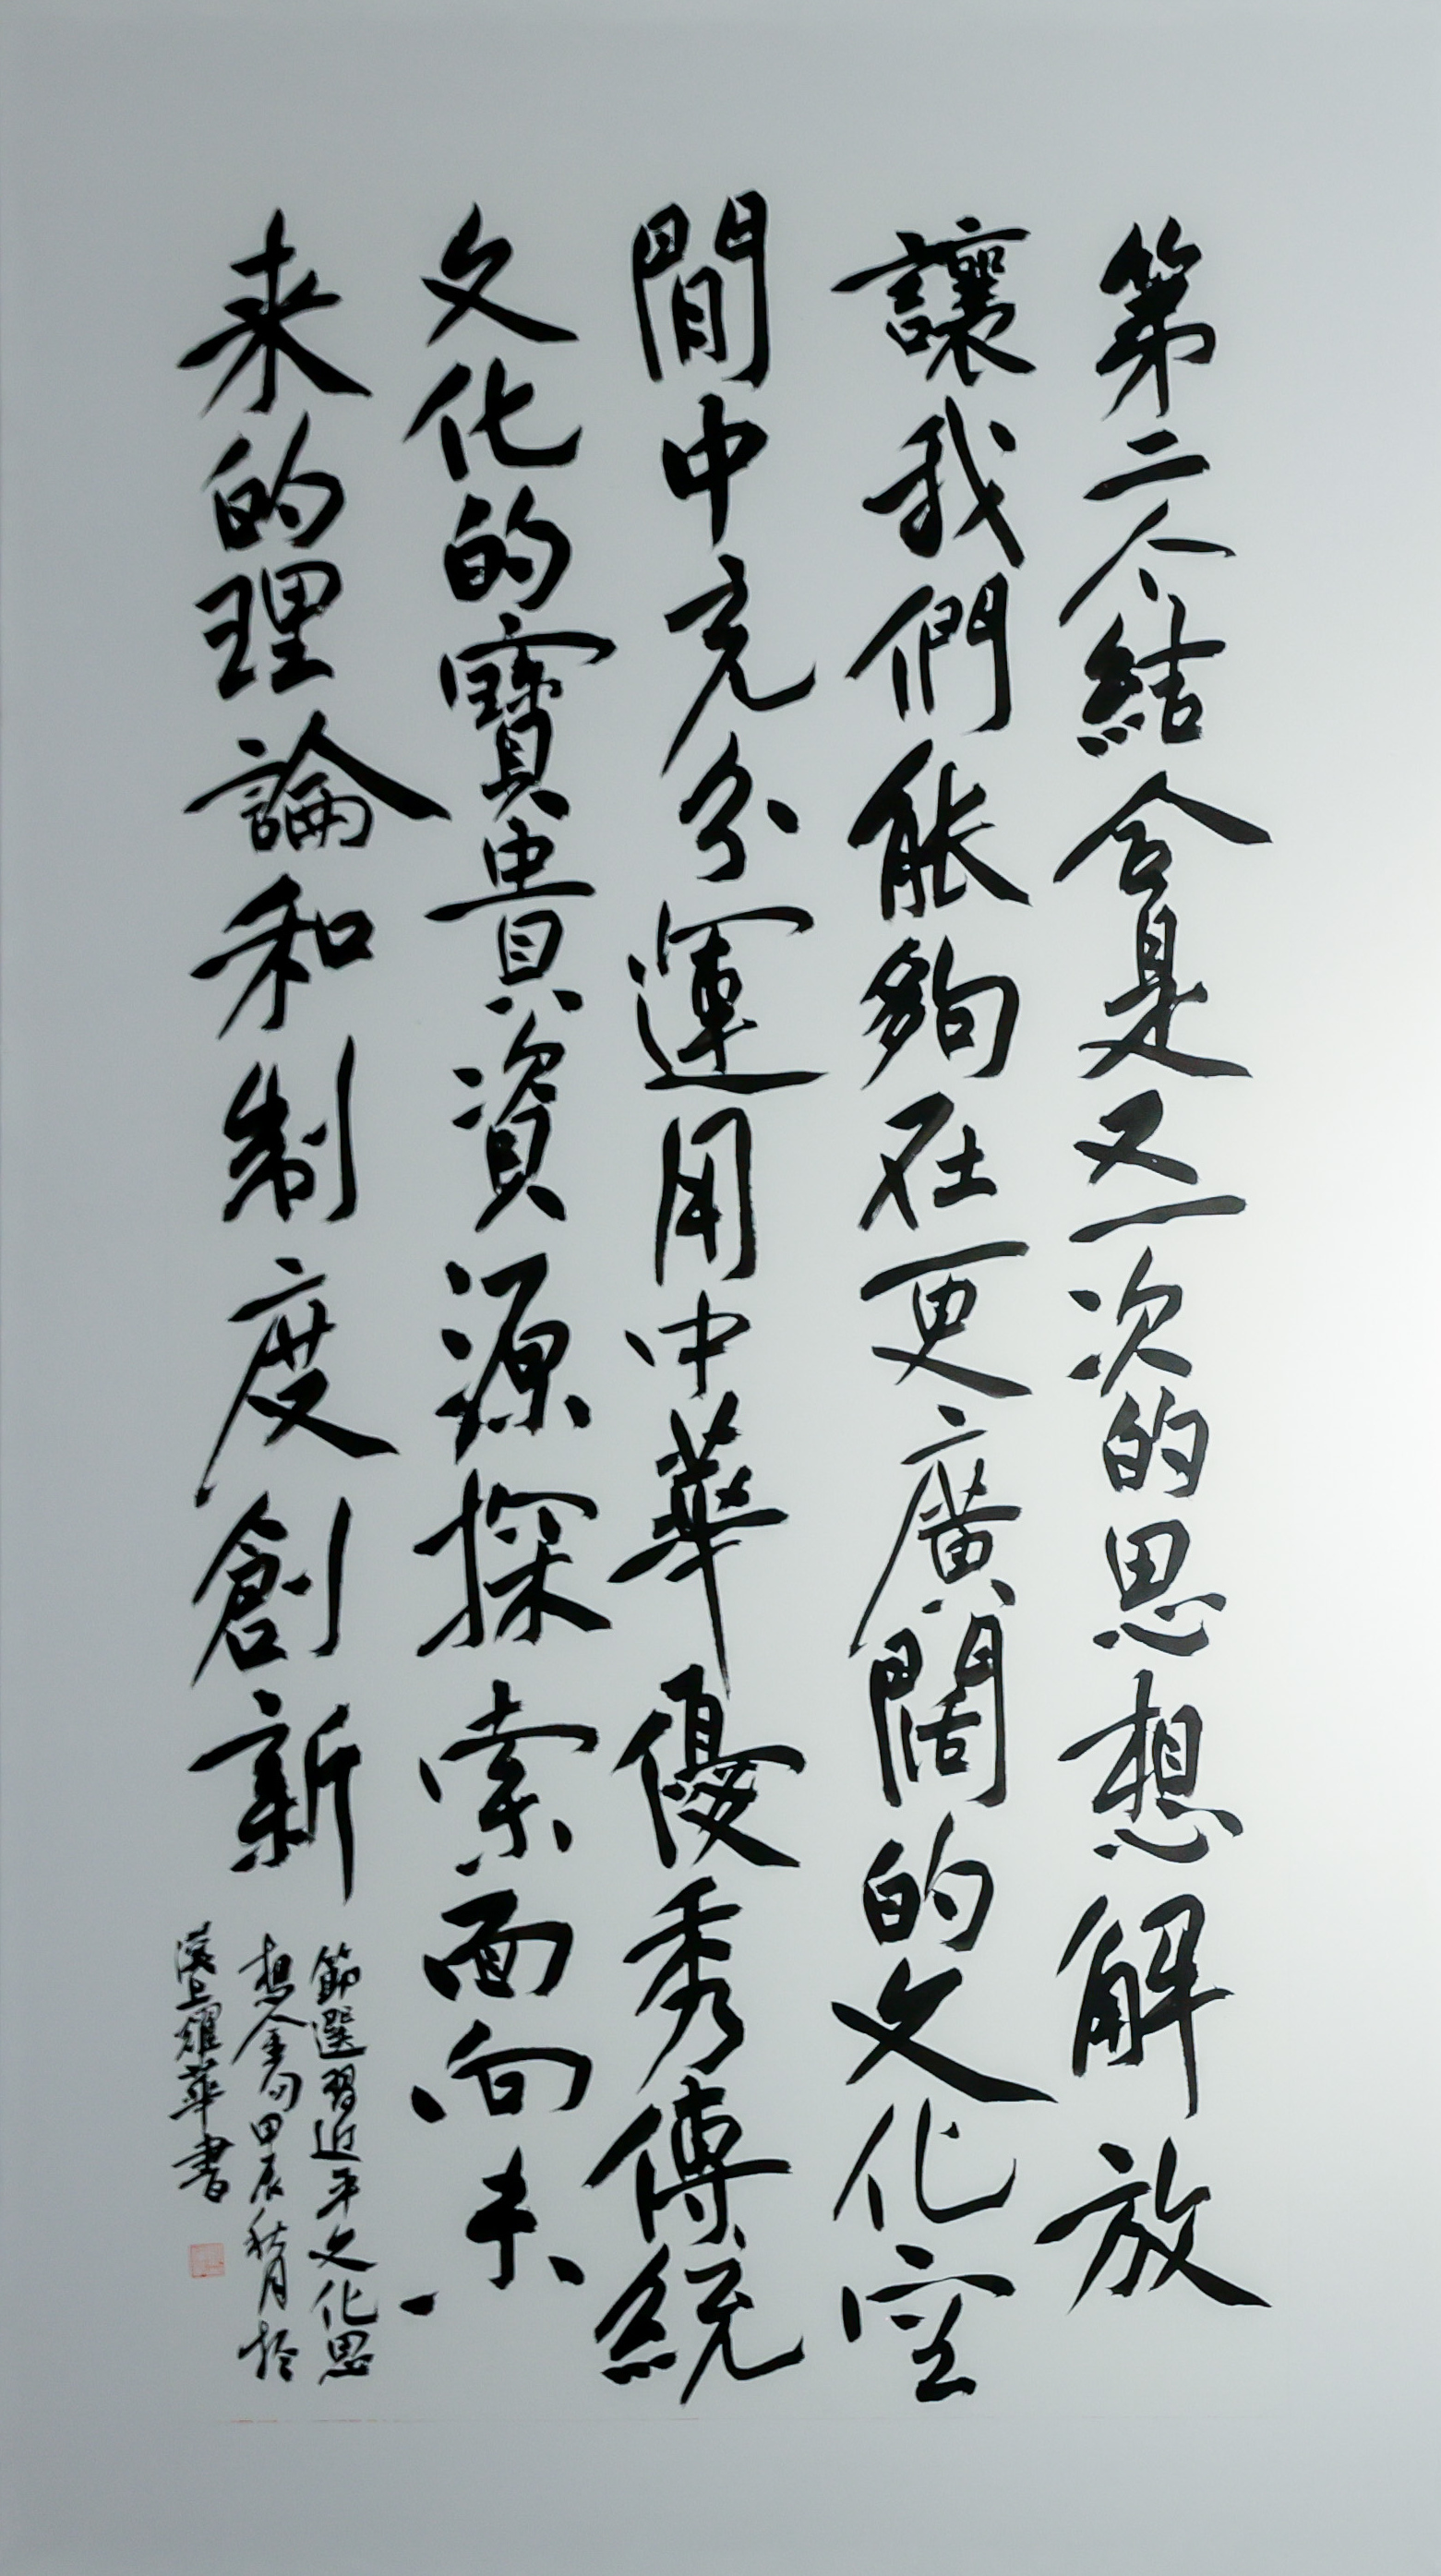 第二个結合是又一次的思想解放
讓我們能夠在更廣闊的文化空
間中充分運用中華優秀傳統
文化的寶貴資源探索面向未
来的理論和制度創新
節選習近平文化思
想金句甲辰秋月於
滬上耀華書